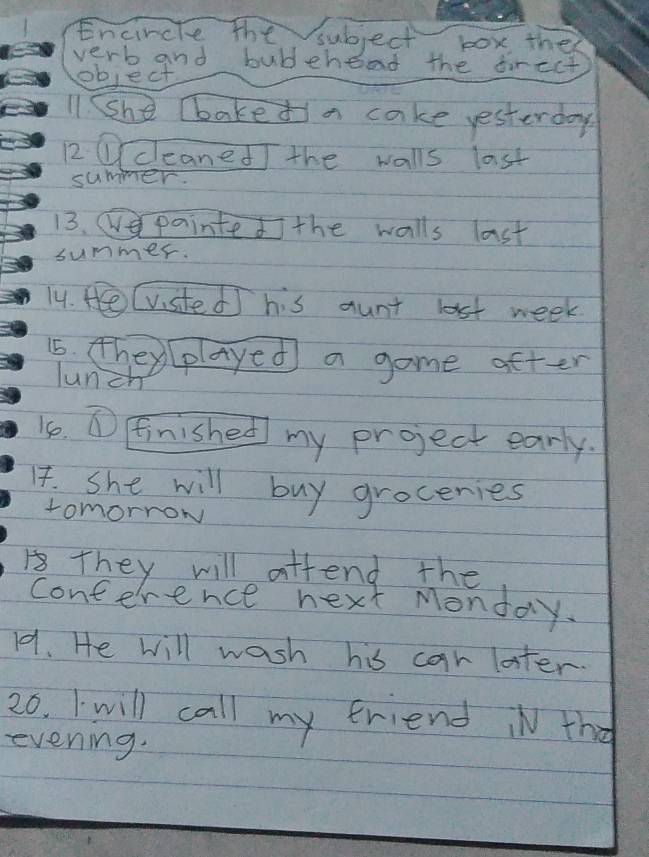 Encircle the subject box the
verb and bublehead the direct
object
11. She baked a cake yesterday
12. I cleaned the walls last
summer.
13. We painted the walls last
summer.
14. He visted his aunt last week.
15. They played a game after
lunch
16. I finished my project early.
17. She will buy groceries
tomorrow
18 They will attend the
Conference next Monday.
19. He will wash his car later.
20. I will call my friend iN the
evening.